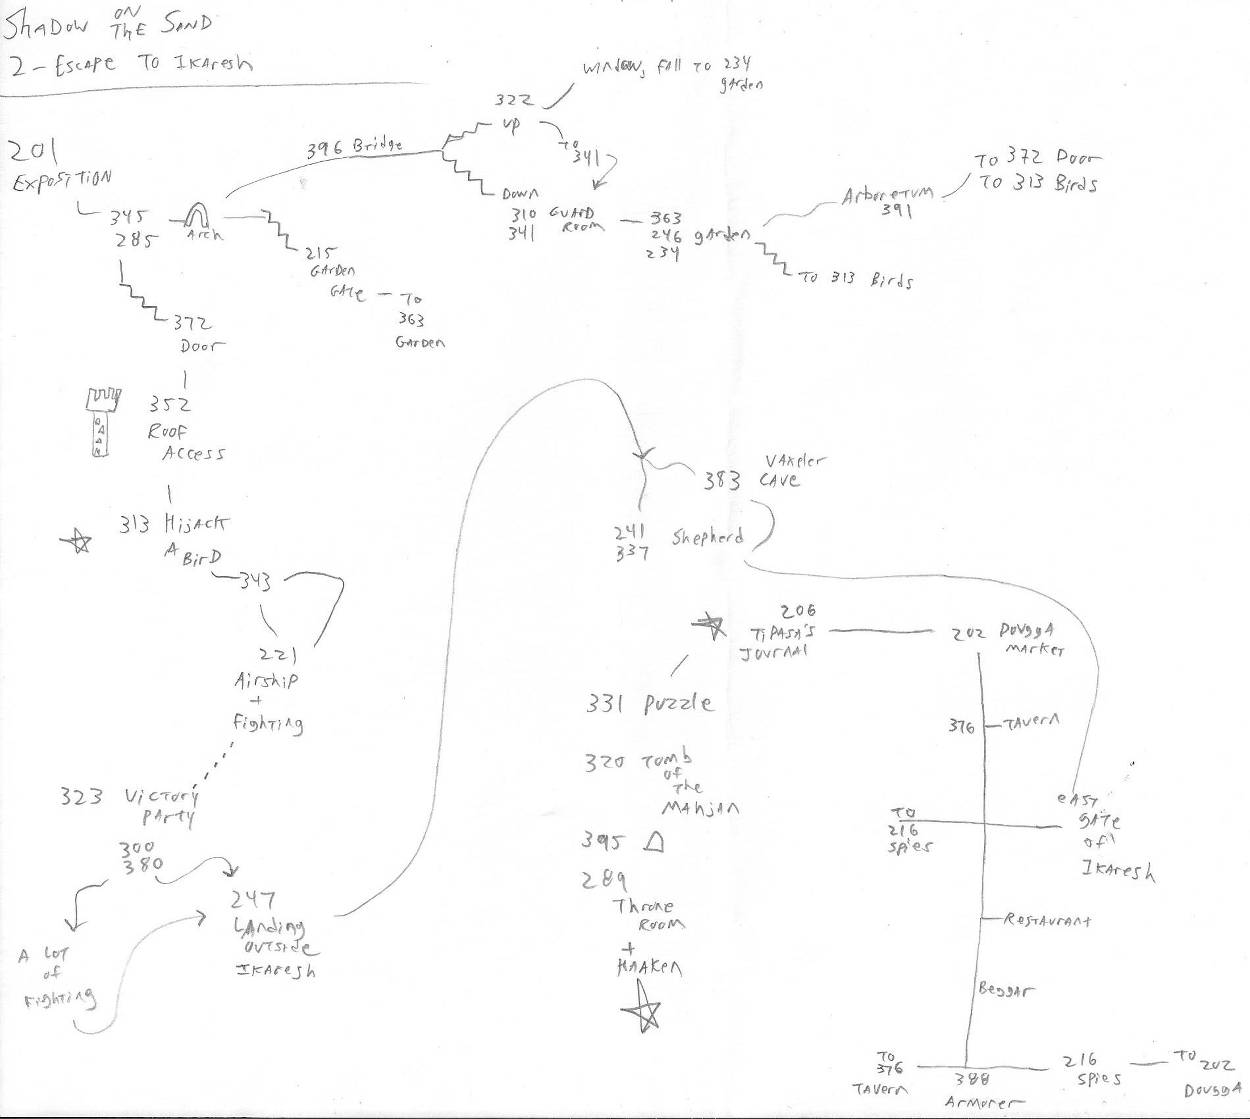 SHADOW ON THE SAND
2 - ESCAPE TO IKAresh
201
EXPOSITION
345
285
Arch
396 Bridge
322
UP
WINDOW, FALL TO 234
garden
TO
341
Down
310 GUARD
341 ROOM
363
246 gArden
234
Arboretum
391
TO 372 Door
TO 313 Birds
TO 313 Birds
215
GArden
GATe
TO
363
GArden
372
Door
352
ROOF
ACCESS
313 HiJACK
A BirD
343
221
AirshiP
+
FighTing
323 VicTory
PArty
300
380
A LOT
of
FighTing
247
LAnding
OUTside
IKAresh
383 VAxeler
CAVe
241
337 Shepherd
206
TiPASA'S
JOURNAl
202 DOUggA
MArKeT
331 PUZZLe
320 TOMb
of
The
MAhJAN
395
289
Throne
ROOM
+
HAAKen
376
TAVern
TO
216
SPies
eAST
gATe
of
IKAresh
ReSTAUrAnt
BeggAr
TO
376
TAVern
388
ArMOrer
216
SPies
TO 202
DOUggA